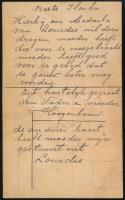 Beste Ilonka
Hierbij een Medaille
van Lourdes wil deze
dragen, moeder heeft
die voor u meegebracht
moeder heeft goed
voor je gebed dat
je gauw beter mag
worden
zijt hartelijk gegroet
van Vader en moeder
Hoogenboom
de andere kaart,
heeft moeder mij
gestuurd uit
Lourdes